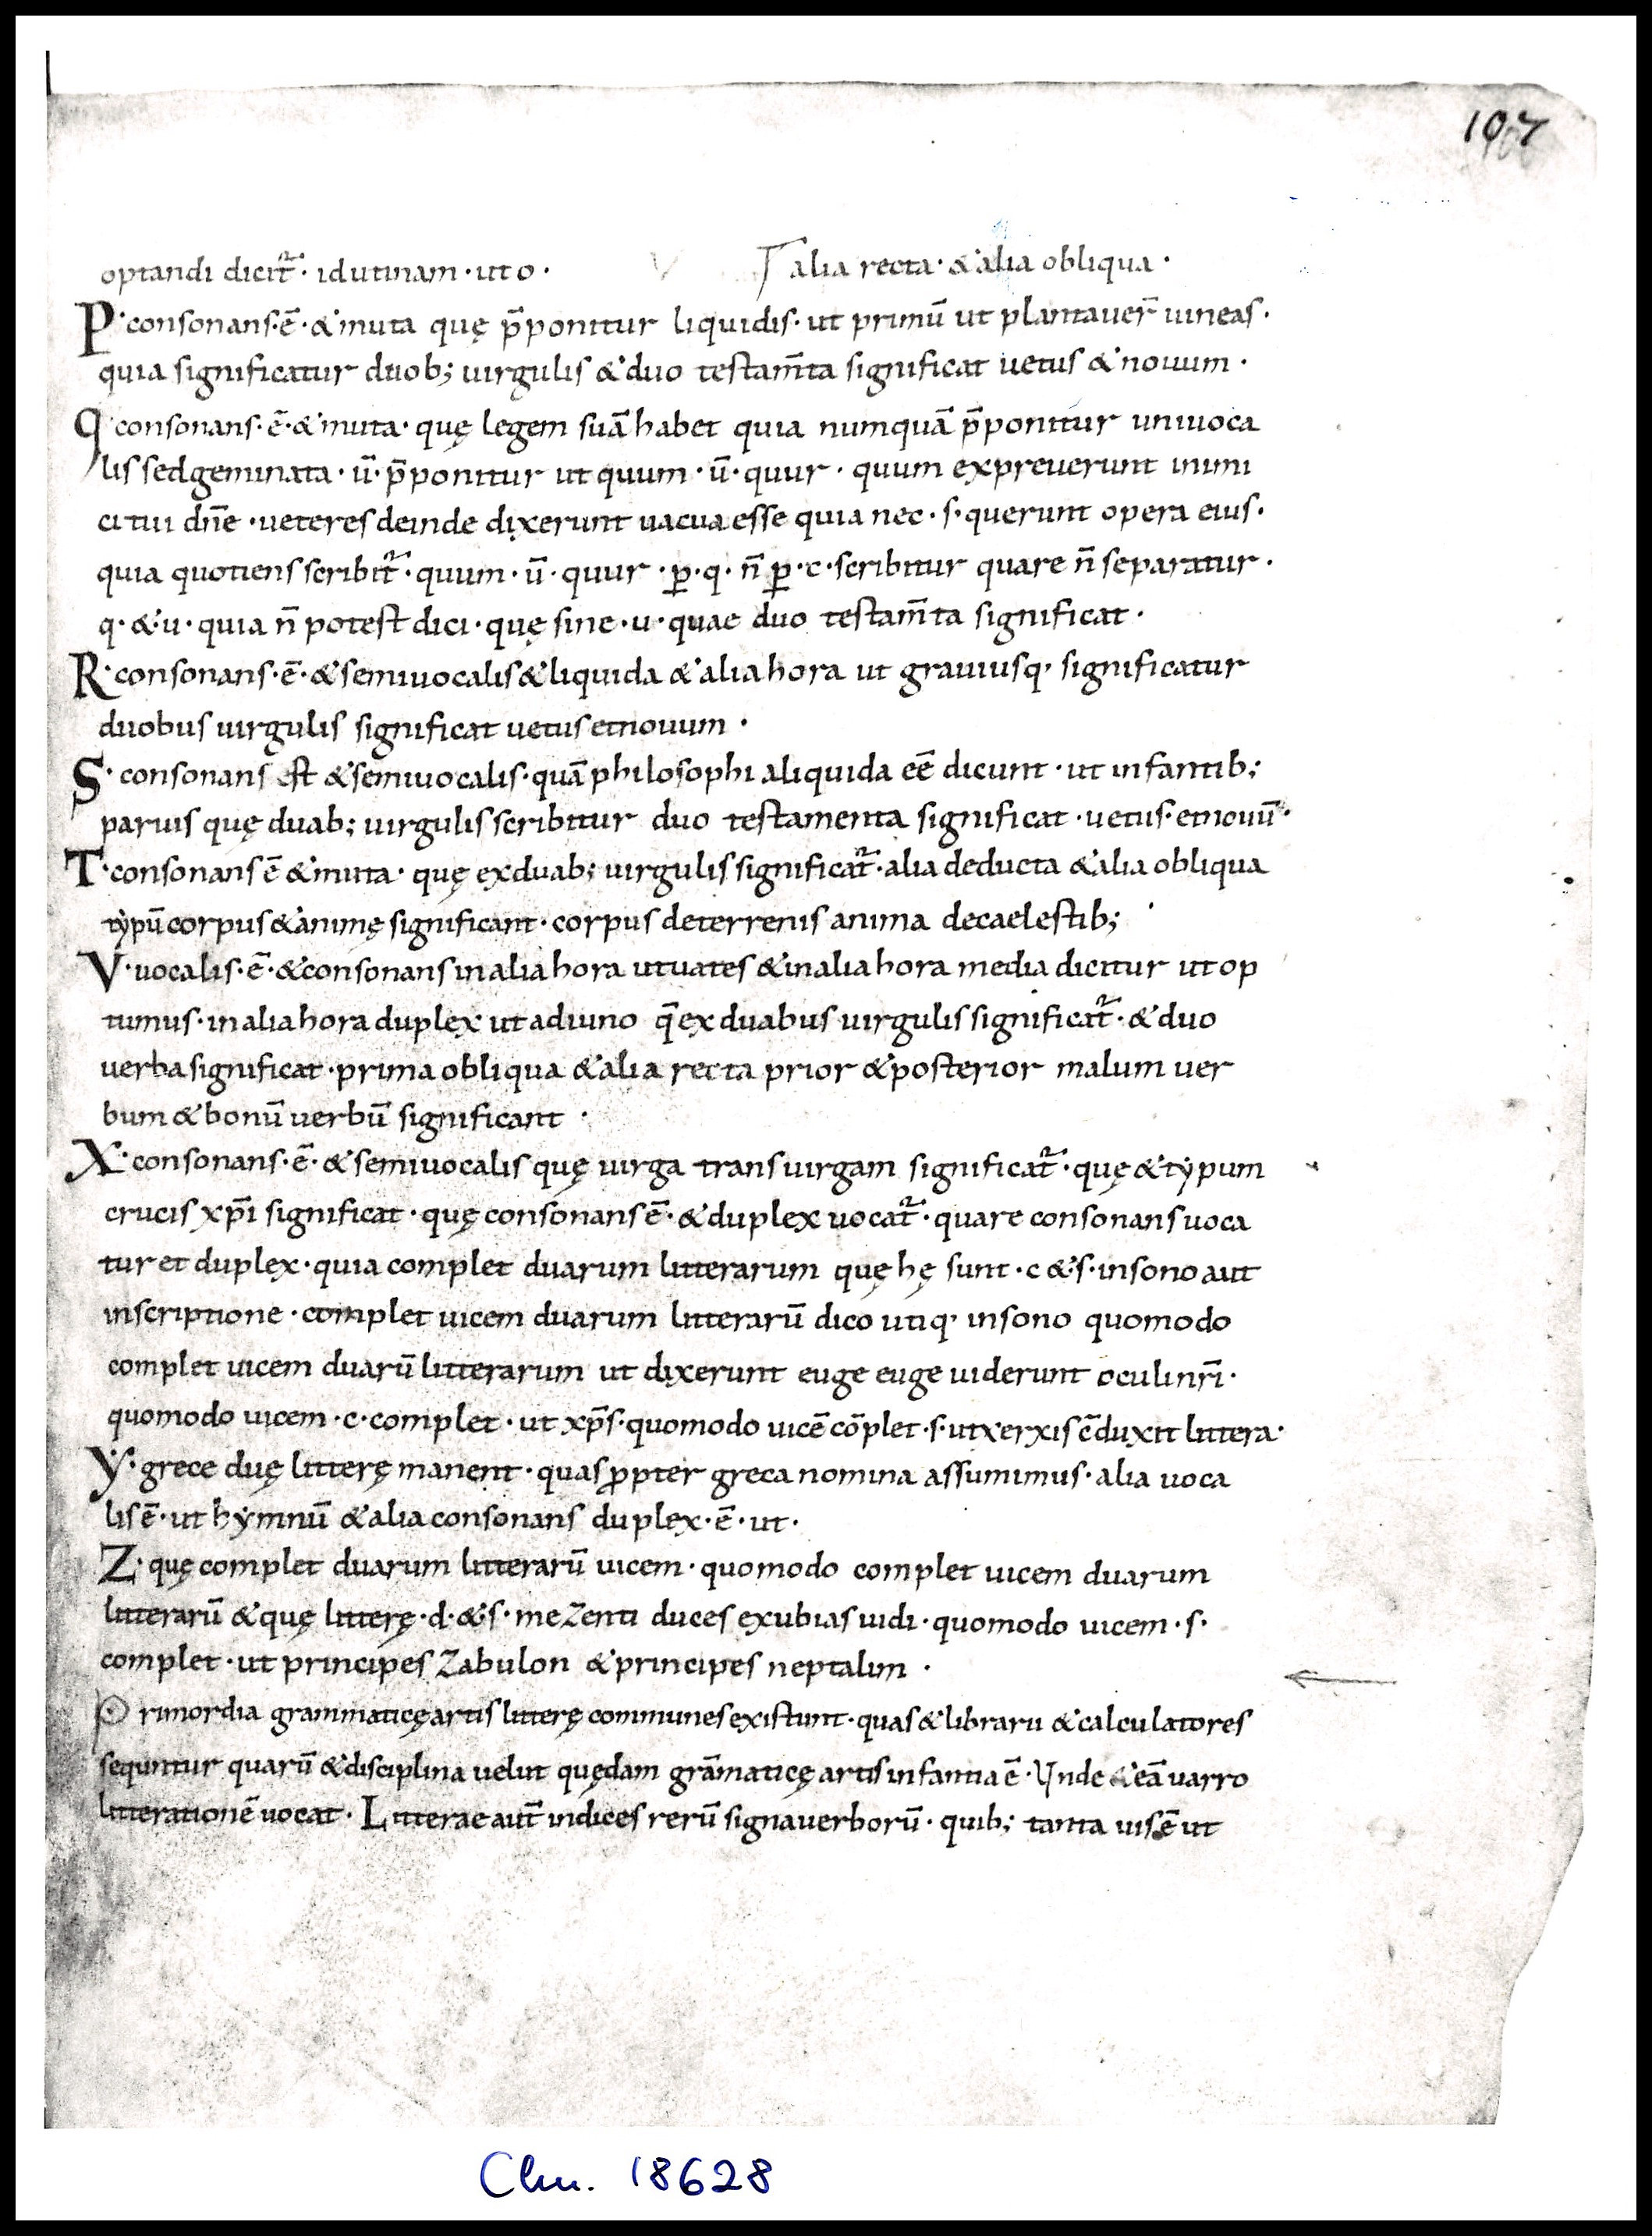 107
optandi dicit᷑ · id utinam · ut o · alia recta · & alia obliqua ·
P · consonans · ē · & muta quę p̄ponitur liquidis · ut primū ut plantauer̄ uineas ·
quia significatur duob; uirgulis & duo testam̄ta significat uetus & nouum ·
q · consonans · ē · & muta · quę legem suā habet quia numquā p̄ponitur uniuoca
lis sed geminata · ū · p̄ponitur ut quum · ū · quur · quum expreuerunt inimi
ci tui dn̄e · ueteres deinde dixerunt uacua esse quia nec · s · querunt opera eius ·
quia quotiens scribit᷑ · quum · ū · quur · ꝑ · q · n̄ ꝑ · c · scribitur quare n̄ separatur ·
q · & · u · quia n̄ potest dici · quę sine · u · quae duo testam̄ta significat ·
R · consonans · ē · & semiuocalis & liquida & alia hora ut grauiusq · significatur
duobus uirgulis significat uetus et nouum ·
S · consonans est & semiuocalis · quā philosophi aliquida eē dicunt · ut infantib;
paruis quę duab; uirgulis scribitur duo testamenta significat · uetus · et nouū ·
T · consonans ē & muta · quę ex duab; uirgulis significat᷑ · alia deducta & alia obliqua
typū corpus & animę significant · corpus de terrenis anima de caelestib;
V · uocalis · ē · & consonans in alia hora ut uates & in alia hora media dicitur ut op
tumus · in alia hora duplex ut adiuno q̄ ex duabus uirgulis significat᷑ · & duo
uerba significat · prima obliqua & alia recta prior & posterior malum uer
bum & bonū uerbū significant ·
X · consonans · ē · & semiuocalis quę uirga trans uirgam significat᷑ · quę & typum
crucis xp̄i significat · quę consonans ē · & duplex uocat᷑ · quare consonans uoca
tur et duplex · quia complet duarum litterarum quę hę sunt · c & · s · in sono aut
in scriptione · complet uicem duarum litterarū dico utiq · in sono quomodo
complet uicem duarū litterarum ut dixerunt euge euge uiderunt oculi nr̄i ·
quomodo uicem · c · complet · ut xp̄s · quomodo uicē cōplet · s · ut xerxis c̄duxit littera ·
Y · grece duę litterę manent · quas ꝓpter greca nomina assumimus · alia uoca
lis ē · ut hymnū & alia consonans duplex · ē · ut ·
Z · quę complet duarum litterarū uicem · quomodo complet uicem duarum
litterarū & quę litterę · d · & · s · mezenti duces exubias uidi · quomodo uicem · s ·
complet · ut principes zabulon & principes neptalim ·
Primordia grammaticę artis litterę communes existunt · quas & librarii & calculatores
sequntur quarū & disciplina uelut quędam grāmaticę artis infantia ē · Unde & eā uarro
litterationē uocat · Litterae aut̄ indices rerū signa uerborū · quib; tanta uis ē ut
Clm. 18628